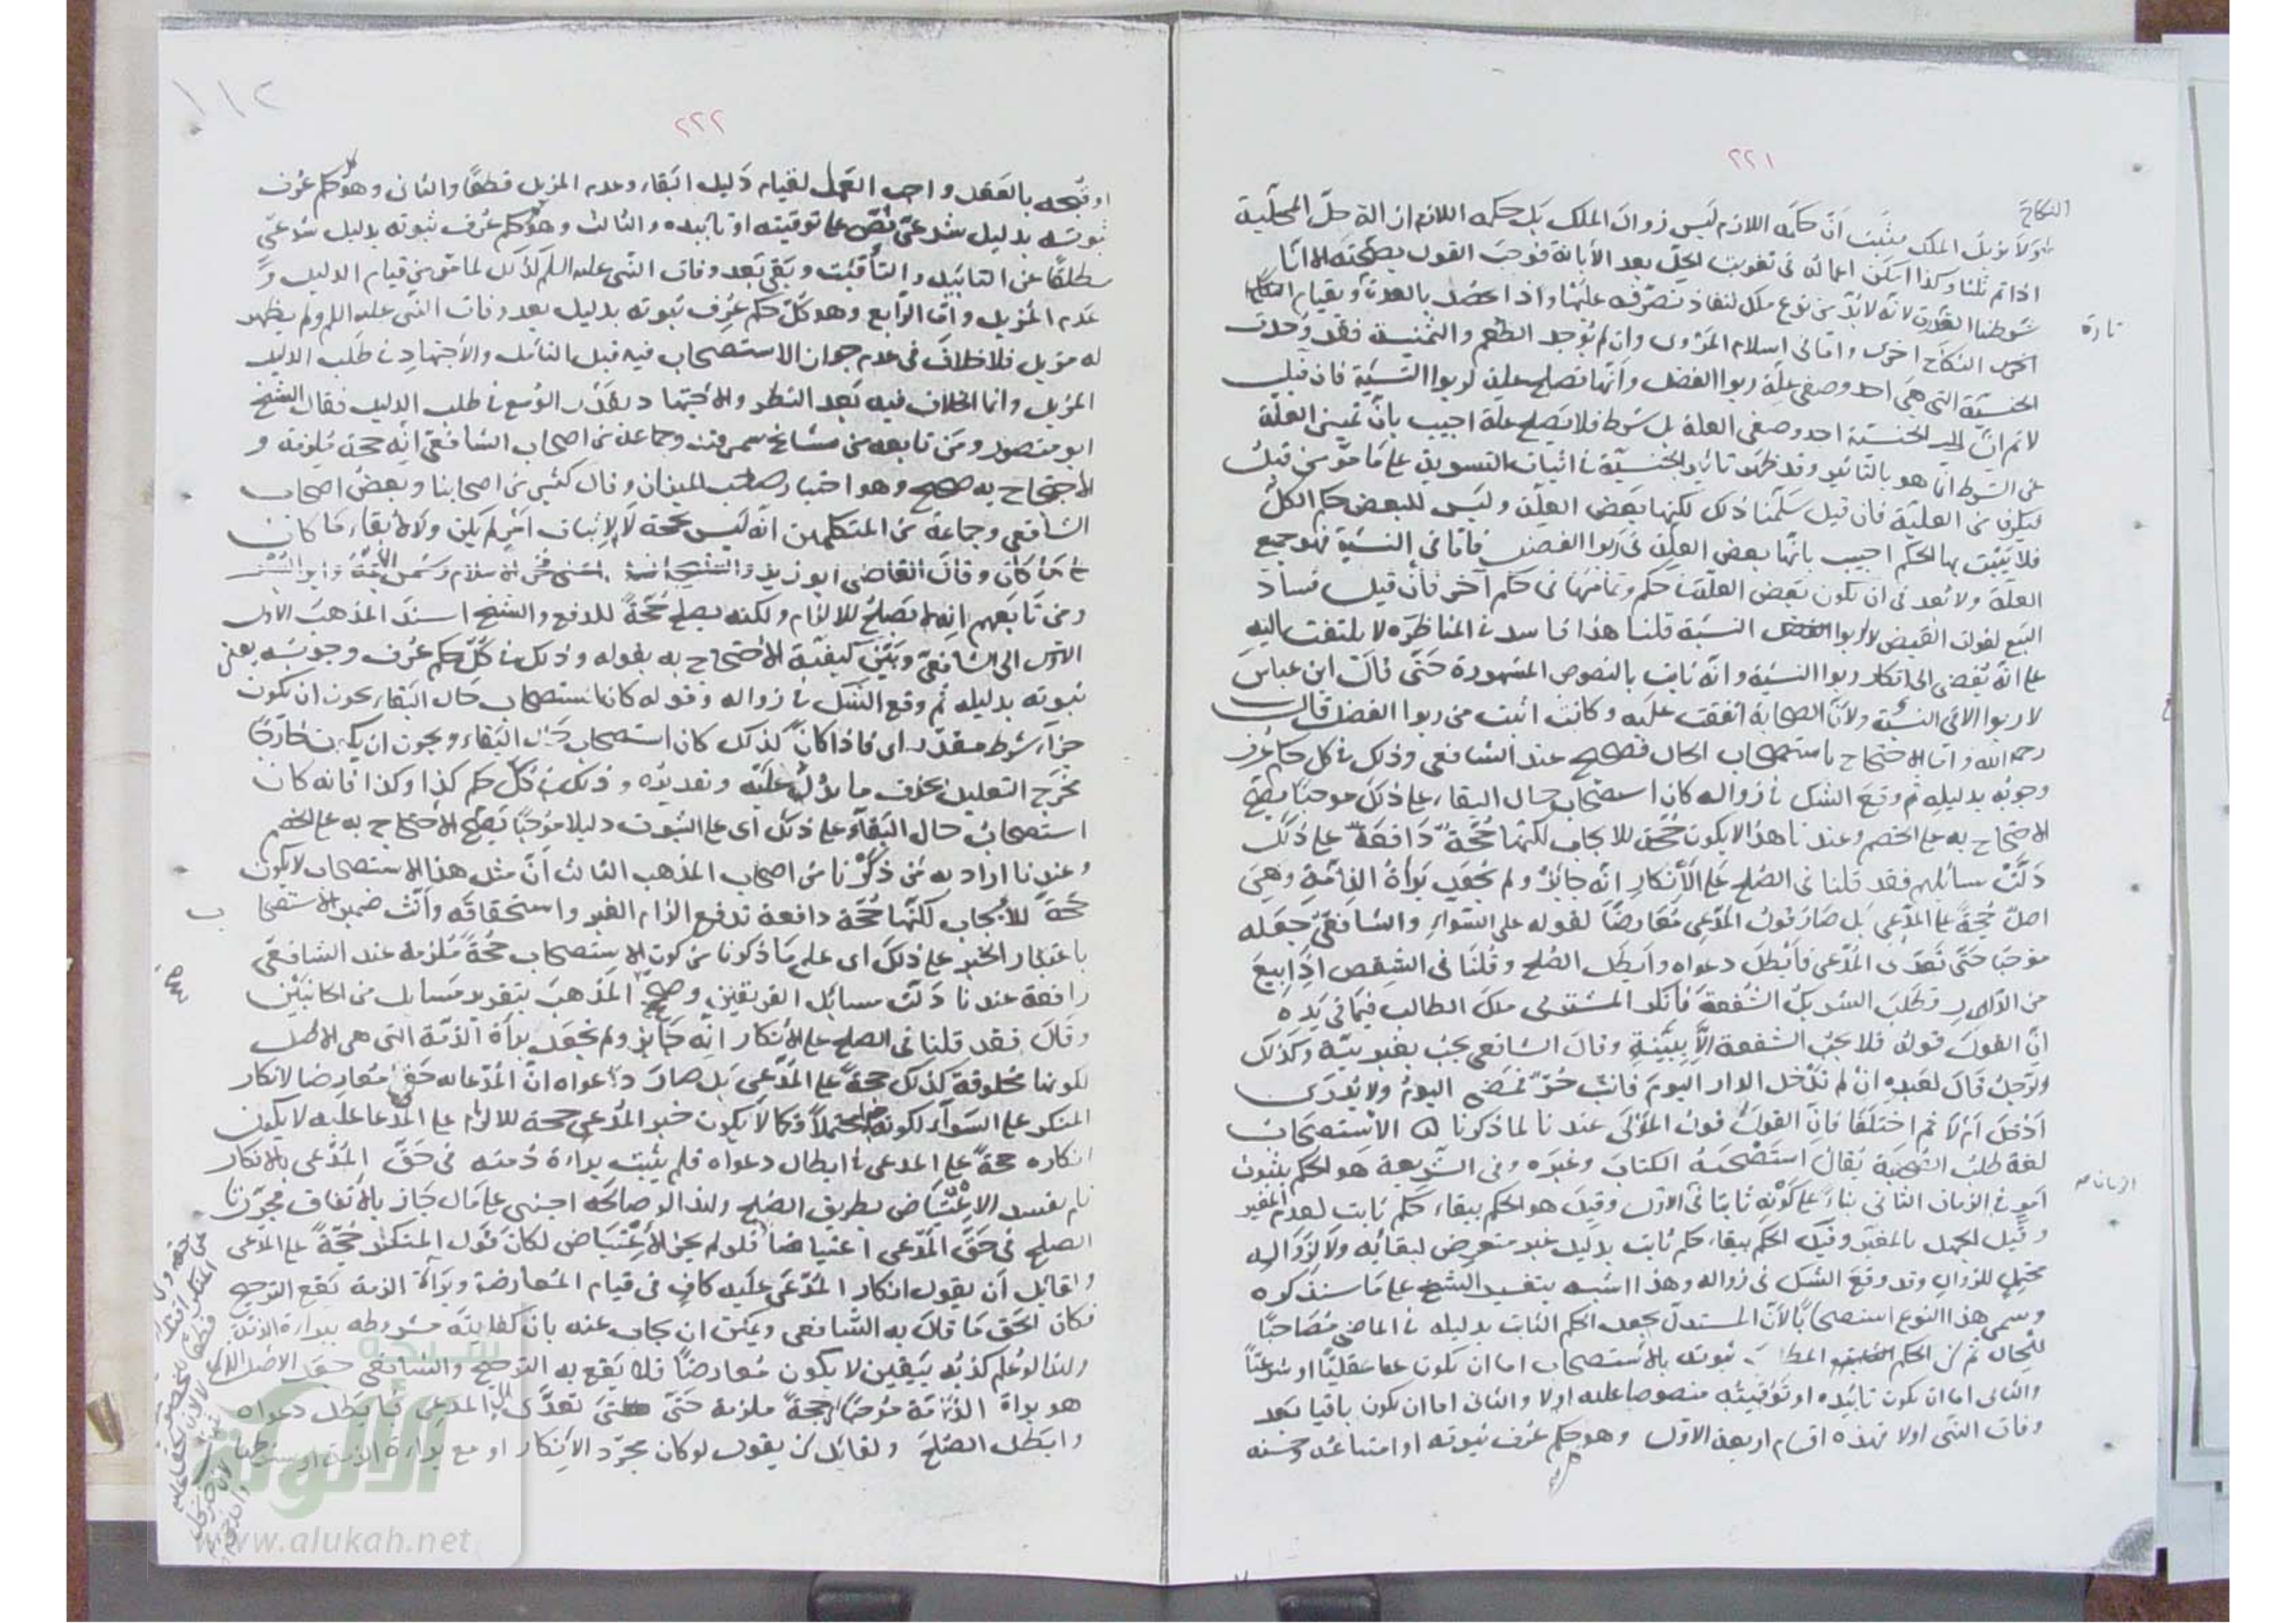 ٢٢١
النكاح
هو لا يزيل الملك فثبت أن حكمه اللازم ليس زوال الملك بل حكمه اللازم ازالة حل المحلية
اذا تم ثلثا وكذا امكن اعماله في تفويت الحل بعد الأبانة فوجب القول بصحته الا انا
شرطنا العدة لانه لا بد من نوع ملك لنفاذ تصرفه عليها واذا حصل بالعدة وبقيام النكاح
تارة
اخرى النكاح اخرى واما في اسلام المروى وان لم يوجد الطعم والثمنية فقد وجدت
الجنسية التي هي احد وصفى علة ربوا الفضل وانها تصلح علة لربوا النسية فان قيل
لا نم ان الجنسية احد وصفي العلة بل شرط فلا يصلح علة اجيب بان تميز العلة
عن الشرط انما هو بالتاثير وقد ظهر تاثير الجنسية في اثبات التسوية على ما مر من قبل
فيكون من العلية فان قيل سلمنا ذلك لكنها بعض العلة وليس للبعض حكم الكل
فلا يثبت بها الحكم اجيب بانها بعض العلة في ربوا الفضل فاما في النسية فهو جميع
العلة ولا بعد في ان يكون بعض العلة في حكم وتمامها في حكم آخر فان قيل فساد
البيع لفوات القبض لا لربوا النسية قلنا هذا فاسد في المناظرة لا يلتفت اليه
على انه يفضى الى انكار ربوا النسية وانه ثابت بالنصوص المشهورة حتى قال ابن عباس
لا ربوا الا في النسية ولأن الصحابة اتفقت عليه وكانت اثبت من ربوا الفضل قال
رحمه الله واما الاحتجاج باستصحاب الحال فصحيح عند الشافعي وذلك في كل حكم عرف
وجوبه بدليله ثم وقع الشك في زواله كان استصحاب حال البقاء على ذلك موجبا يصح
الاحتجاج به على الخصم وعندنا هذا لا يكون حجة للايجاب لكنها حجة دافعة على ذلك
دلت مسائلهم فقد قلنا في الصلح على الأنكار انه جائز ولم نجعل براة الذمة وهي
اصل حجة على المدعى بل صار قول المدعى معارضا لقوله على السواء والشافعي جعله
موجبا حتى تعدى المدعى فأبطل دعواه وابطل الصلح وقلنا في الشقص اذا بيع
من الدار وطلب الشريك الشفعة فانكر المشترى ملك الطالب فيما في يده
ان القول قوله فلا يجب الشفعة الا ببينة وقال الشافعي يجب بغير بينة وكذلك
الرجل قال لعبده ان لم تدخل الدار اليوم فانت حر فمضى اليوم ولا يدرى
ادخل ام لا ثم اختلفا فان القول قول المولى عندنا لما ذكرنا الاستصحاب
لغة طلب الصحبة يقال استصحبه الكتاب وغيره وفي الشريعة هو الحكم بثبوت
الزمان صح
امر في الزمان الثاني بناء على كونه ثابتا في الاول وقيل هو الحكم ببقاء حكم ثابت لعدم المغير
وقيل للجهل بالمغير وقيل الحكم ببقاء حكم ثابت بدليل غير متعرض لبقائه ولا لزواله
محتمل للزوال وقد وقع الشك في زواله وهذا اشبه بتفسير الشيخ على ما سنذكره
وسمى هذا النوع استصحابا لأن المستدل يجعل الحكم الثابت بدليله في الماضي مصاحبا
للحال ثم ان الحكم المط ثبوته بالاستصحاب اما ان يكون عقليا او شرعيا
والثاني اما ان يكون تابيده او توقيته منصوصا عليه اولا والثاني اما ان يكون باقيا بعد
وفات النبي اولا فهذه اقسام اربعة الاول وهو حكم عرف ثبوته او امتناعه وحسنه
١١٢
٢٢٢
او قبحه بالعقل واجب العمل لقيام دليل البقاء وعدم المزيل قطعا والثاني وهو كل حكم عرف
ثبوته بدليل شرعي نص على توقيته او تأبيده والثالث وهو كل حكم عرف ثبوته بدليل شرعي
مطلقا عن التابيد والتأقيت وبقى بعد وفات النبي عليه السلم كذلك لما مر من قيام الدليل و
عدم المزيل واما الرابع وهو كل حكم عرف ثبوته بدليل بعد وفات النبي عليه السلم ولم يظهر
له مزيل فلا خلاف في عدم جواز الاستصحاب فيه قبل التامل والأجتهاد في طلب الدليل
المزيل وانما الخلاف فيه بعد النظر والاجتهاد بقدر الوسع في طلب الدليل فقال الشيخ
ابو منصور ومن تابعه من مشايخ سمرقند وجماعة من اصحاب الشافعي انه حجة ملزمة و
الاحتجاج به صحيح وهو اختيار صاحب الميزان وقال كثير من اصحابنا وبعض اصحاب
الشافعي وجماعة من المتكلمين انه ليس بحجة لا لإثبات امر لم يكن ولا لأبقاء ما كان
على ما كان وقال القاضي ابو زيد والشيخان اعنى فخر الاسلام وشمس الأئمة وابو اليسر
ومن تابعهم انه لا يصلح للالزام ولكنه يصلح حجة للدفع والشيخ اسند المذهب الاول
الى الشافعي وبين كيفية الأحتجاج به بقوله وذلك في كل حكم عرف وجوبه يعني
ثبوته بدليله ثم وقع الشك في زواله وقوله كان استصحاب حال البقاء يجوز ان يكون
جزاء شرط مقدر اى فاذا كان كذلك كان استصحاب حال البقاء ويجوز ان يكون خارجا
مخرج التعليل بحذف ما يدل عليه وتقديره وذلك في كل حكم كذا وكذا فانه كان
استصحاب حال البقاء على ذلك اى على الثبوت دليلا موجبا يصح الأحتجاج به على الخصم
وعندنا اراد به من ذكرنا من اصحاب المذهب الثالث ان مثل هذا الاستصحاب لا يكون
حجة للأيجاب لكنها حجة دافعة تدفع الزام الغير واستحقاقه وأنث ضمير الاستصحاب
باعتبار الخبر على ذلك اى على ما ذكرنا من كون الاستصحاب حجة ملزمة عند الشافعي
دافعة عندنا دلت مسائل الفريقين وصح المذهب بتقرير مسايل من الجانبين
وقال فقد قلنا في الصلح على الأنكار انه جايز ولم نجعل براة الذمة التي هي الاصل
لكونها مخلوقة كذلك حجة على المدعى بل صار دعواه ان المدعا له حقى معارضا لانكار
المنكر على السواء لكونه خبرا محتملا فكما لا يكون خبر المدعى حجة للالزام على المدعا عليه لا يكون
انكاره حجة على المدعى في ابطال دعواه فلم يثبت براءة ذمته في حق المدعى بالانكار
فلم يفسد الاعتياض بطريق الصلح ولهذا لو صالحه اجنبي على مال جاز بالأتفاق فجوزنا
الصلح في حق المدعى اعتياضا فلو لم يجز الأعتياض لكان قول المنكر حجة على المدعى
ولقائل أن يقول انكار المدعى عليه كاف في قيام المعارضة وبراة الذمة يقع الترجيح
فكان الحق ما قال به الشافعي ويمكن ان يجاب عنه بان كفايته مشروطه ببراءة الذمة
ولهذا لو علم كذبه بيقين لا يكون معارضا فلا يقع به الترجيح والشافعي جعل الاصل الذى
هو براة الذمة موجبا اى حجة ملزمة حتى تعدى الى المدعى فابطل دعواه
وابطل الصلح ولقائل ان يقول لو كان مجرد الأنكار او مع براءة الذمة
شبكة
الألوكة
www.alukah.net